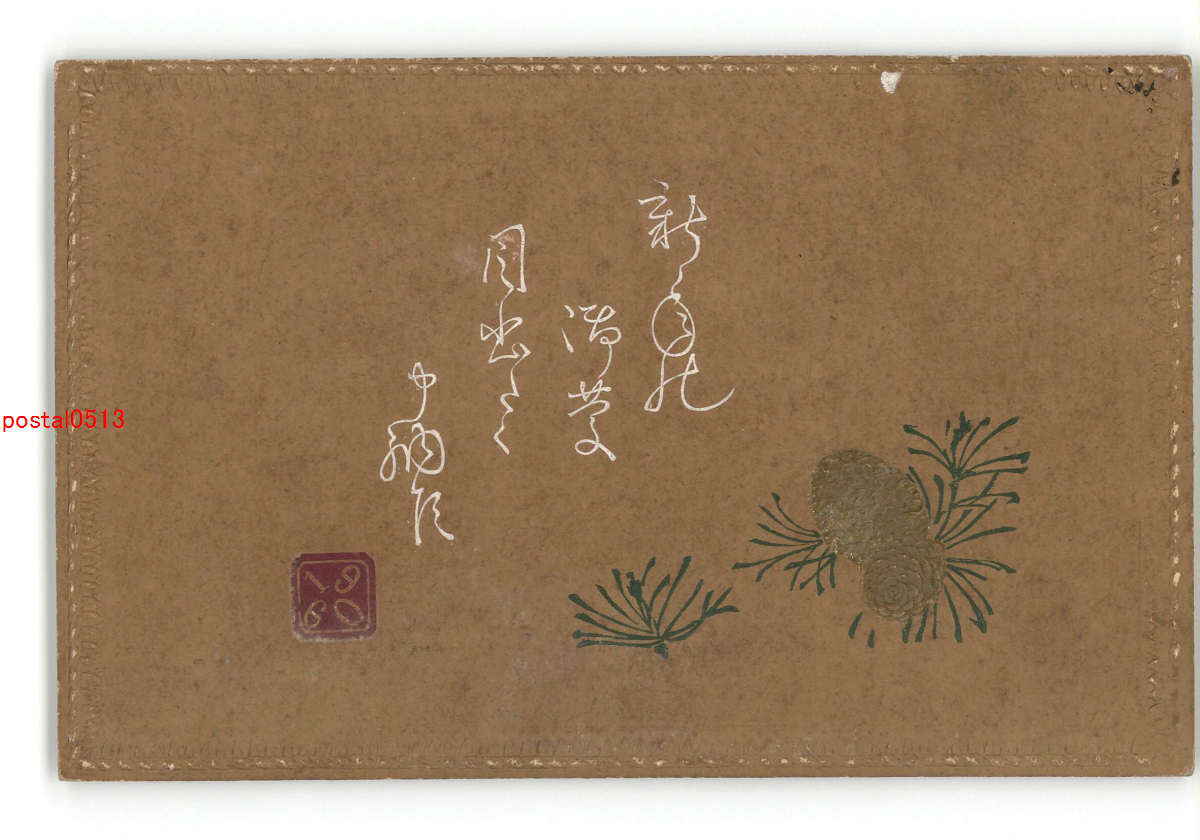 新年の
御慶
目出たく
申納候
19
60
postal0513